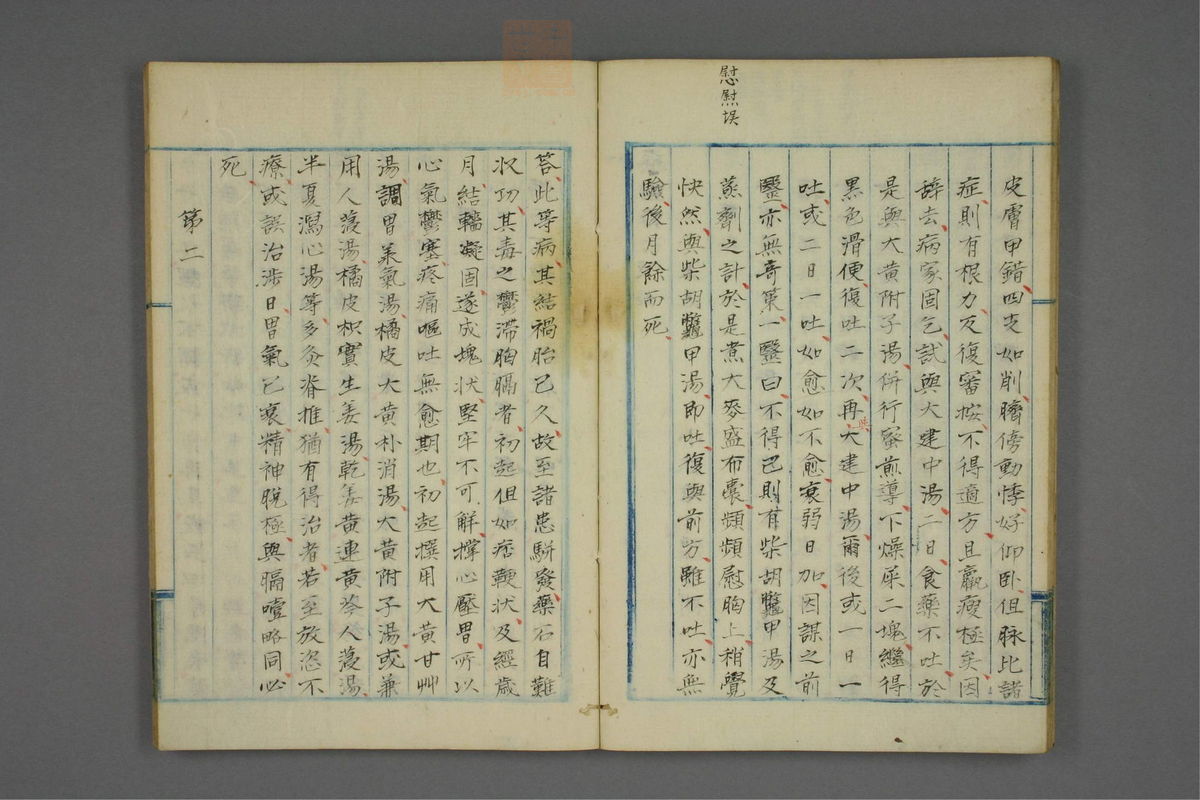 慰慰誤
皮膚甲錯四支如削臍傍動悸好仰卧但脉比諸
症則有根力反復審按不得適方且羸瘦極矣因
辞去病家固乞試與大建中湯二日食藥不吐於
是與大黄附子湯併行蜜煎導下燥屎二塊繼得
黒色滑便復吐二次再與大建中湯爾後或一日一
吐或二日一吐如愈如不愈衰弱日加因謀之前
醫亦無奇策一醫曰不得已則有柴胡鼈甲湯及
蒸劑之計於是煮大麥盛布囊頻頻慰胸上稍覺
快然與柴胡鼈甲湯即吐復與前方雖不吐亦無
驗後月餘而死
答此等病其結禍胎已久故至諸患駢發藥石自難
收功其毒之鬱滞胸膈者初起但如痞鞕状及經歳
月結轖凝固遂成塊状堅牢不可解撑心壓胃所以
心氣鬱塞疼痛嘔吐無愈期也初起撰用大黄甘艸
湯調胃羕氣湯橘皮大黄朴消湯大黄附子湯或兼
用人薓湯橘皮枳實生姜湯乾姜黄連黄芩人薓湯
半夏瀉心湯等多灸脊推猶有得治者若至放恣不
療或誤治渉日胃氣已衰精神脱極與膈噎略同必
死
第二